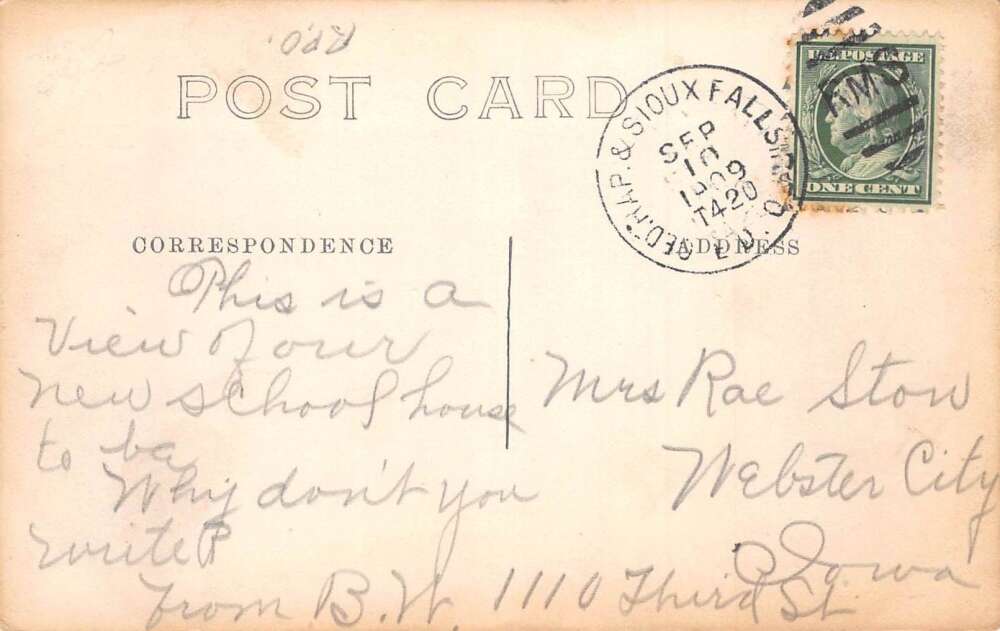 RPO.
POST CARD
CED. RAP. & SIOUX FALLS R.P.O.
SEP
10
1909
T420
RMS
U.S. POSTAGE
ONE CENT
CORRESPONDENCE
ADDRESS
This is a
View of our
new school house
to be
Why don't you
write?
From B.W. 1110 Third St.
Mrs Rae Stow
Webster City
Iowa